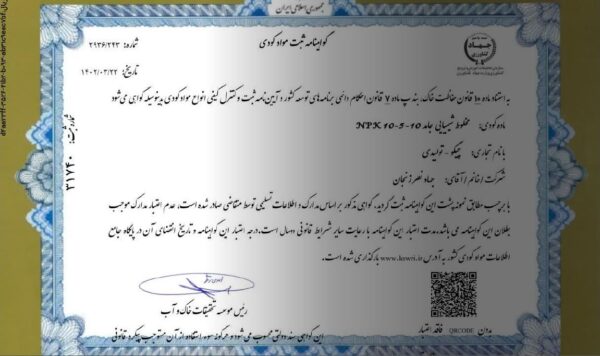 جمهوری اسلامی ایران
گواهینامه ثبت مواد کودی
شماره: ۲۹۳۶/۲۴۳
تاریخ: ۱۴۰۲/۰۳/۲۲
جهاد
کشاورزی
به استناد ماده ۱۰ قانون حفاظت خاک، بند پ ماده ۷ قانون احکام دائمی برنامه‌های توسعه کشور و آیین‌نامه ثبت و کنترل کیفی انواع مواد کودی بدینوسیله گواهی می‌شود
ماده کودی: مخلوط شیمیایی جامد NPK 10-5-10
با نام تجاری: چیکو - تولیدی
شرکت / خانم / آقای: جهاد نصر زنجان
با برچسب مطابق نمونه پشت این گواهینامه ثبت گردید. گواهی مذکور بر اساس مدارک و اطلاعات تسلیمی توسط متقاضی صادر شده است، عدم اعتبار مدارک موجب
بطلان این گواهینامه می باشد. مدت اعتبار این گواهینامه با رعایت سایر شرایط قانونی سال است. درجه اعتبار این گواهینامه و تاریخ انقضای آن در پایگاه جامع
اطلاعات مواد کودی کشور به آدرس www.kswri.ir بارگذاری شده است.
شماره ثبت: ۳۱۷۴۰
رئیس موسسه تحقیقات خاک و آب
بدون QRCODE فاقد اعتبار
این گواهی سند دولتی محسوب می شود و هرگونه سوء استفاده از آن مستوجب پیگرد قانونی